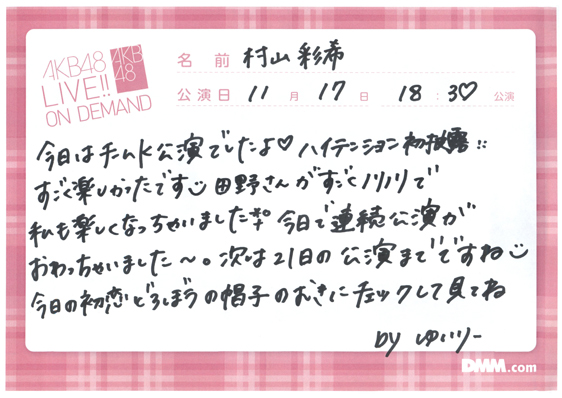 AKB48
LIVE!!
ON DEMAND
AKB
48
名前 村山彩希
公演日 11月17日 18:30公演
今日はチームK公演でしたよ♡ ハイテンション初披露!!
すごく楽しかったです 田野さんがすごくノリノリで
私も楽しくなっちゃいました 今日で連続公演が
おわっちゃいました〜。次は21日の公演までですね
今日の初恋どろぼうの帽子のむきにチェックして見てね
by ゆいりー
DMM.com